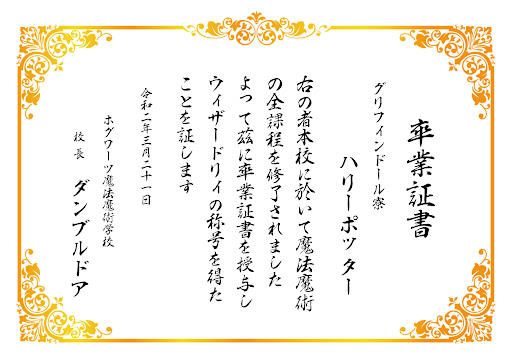 卒業証書
グリフィンドール寮
ハリーポッター
右の者本校に於いて魔法魔術
の全課程を修了されました
よって茲に卒業証書を授与し
ウィザードリィの称号を得た
ことを証します
令和二年三月二十一日
ホグワーツ魔法魔術学校
校長 ダンブルドア